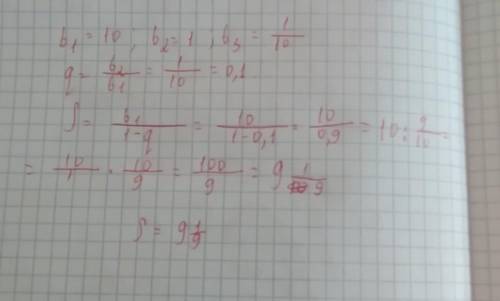 b₁ = 10 ; b₂ = 1 ; b₃ = 1/10
q = b₂/b₁ = 1/10 = 0,1
S = b₁/(1-q) = 10/(1-0,1) = 10/0,9 = 10 : 9/10 =
= 10/1 · 10/9 = 100/9 = 9 1/9
S = 9 1/9